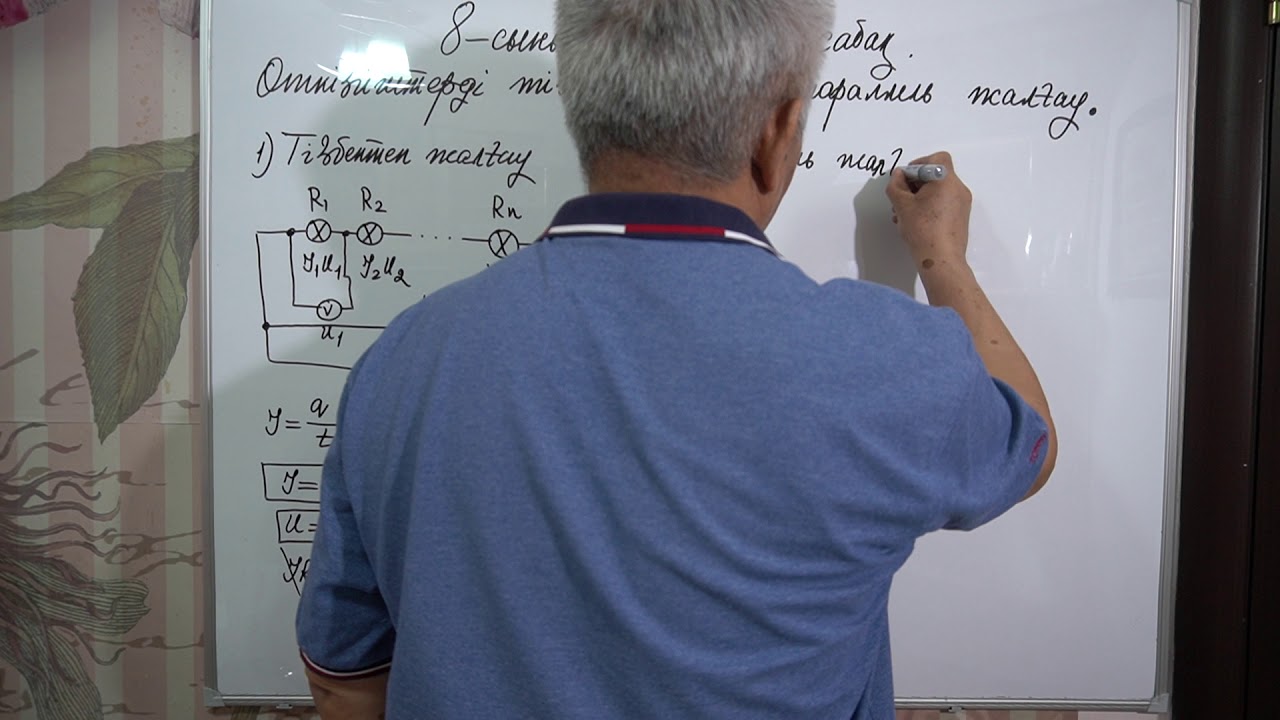 8-сынып сабақ.
Өткізгіштерді ті параллель жалғау.
1) Тізбектеп жалғау ль жалғ
R₁ R₂ Rn
I₁U₁ I₂U₂
V
U₁
I = q/t
I=
U=
IR